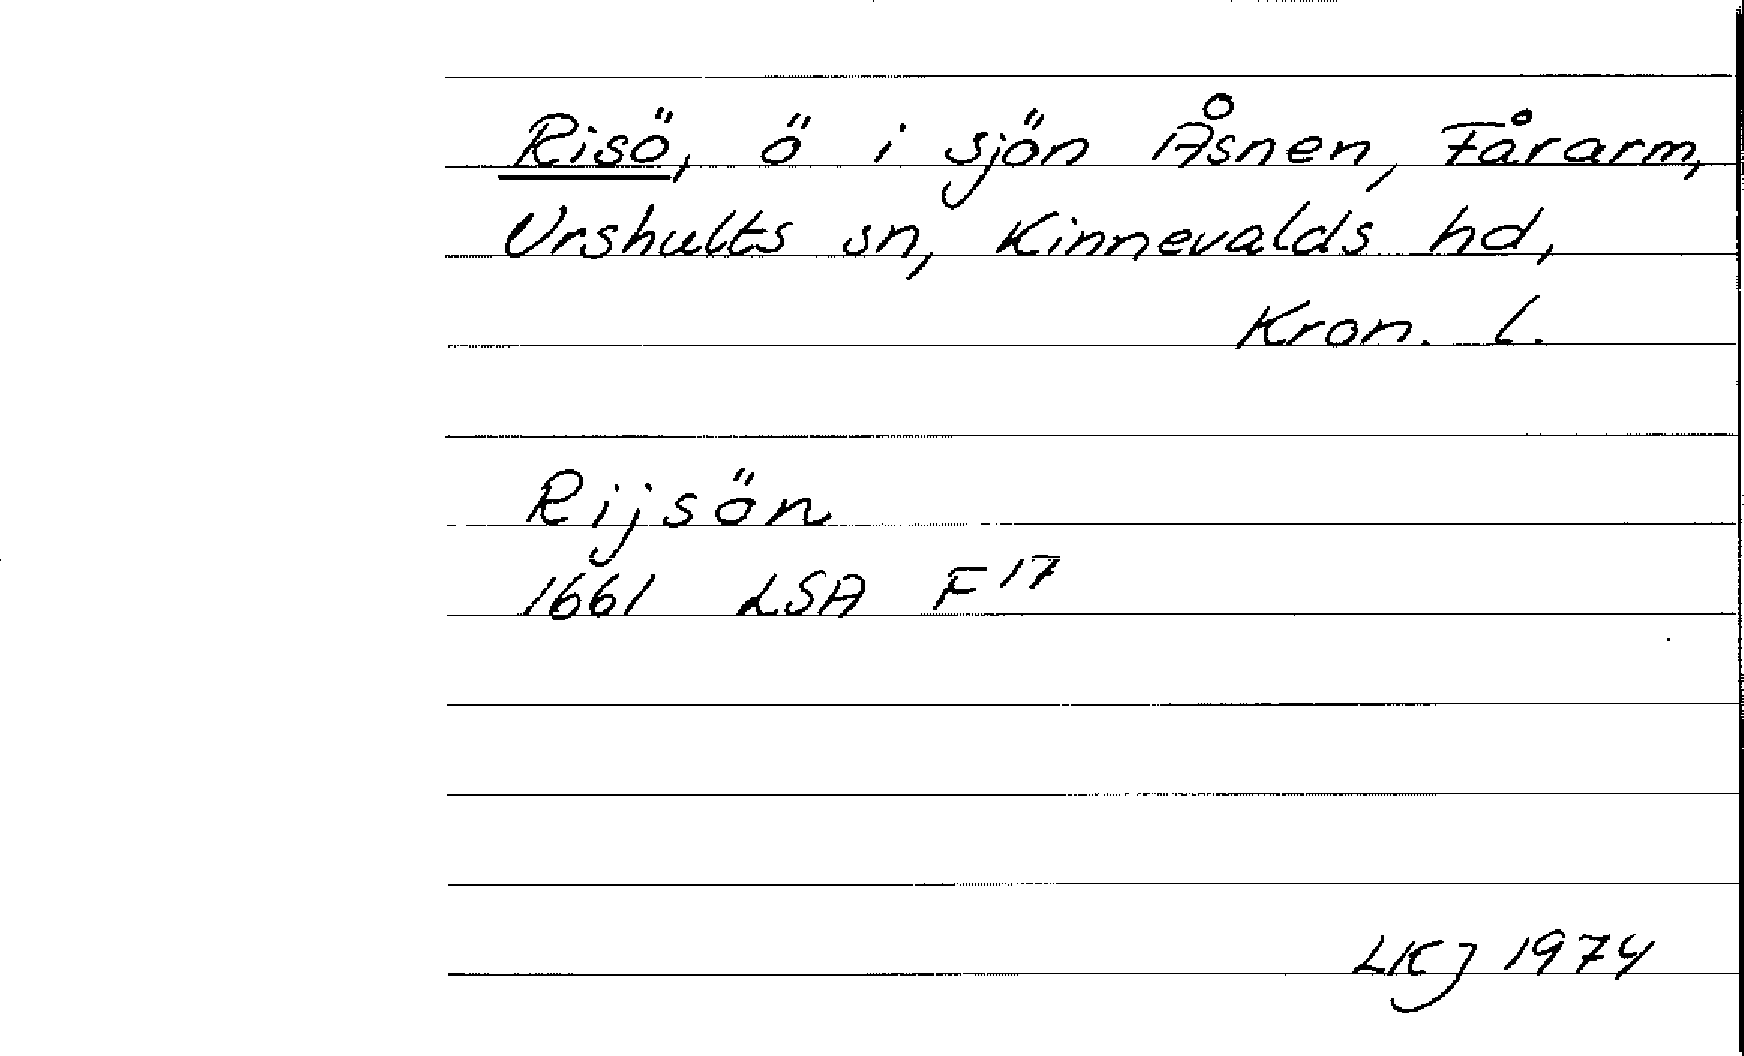 Risö, ö i sjön Åsnen, Fårarm,
Urshults sn, Kinnevalds hd,
Kron. l.
Rijsön
1661 LSA F 17
LKJ 1974